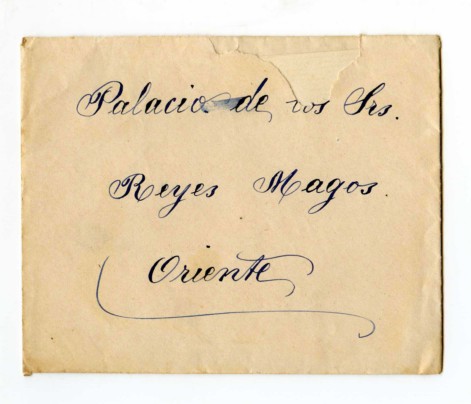 Palacio de los Srs.
Reyes Magos.
Oriente